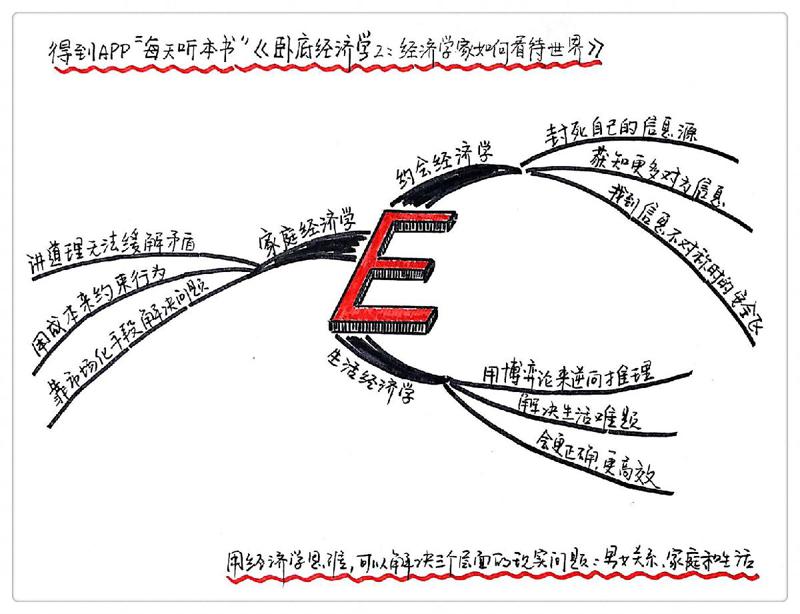 得到APP"每天听本书"《卧底经济学2：经济学家如何看待世界》
约会经济学
封死自己的信息源
获知更多对方信息
找到信息不对称时的安全飞
家庭经济学
讲道理无法缓解矛盾
用成本来约束行为
靠市场化手段解决问题
E
生活经济学
用博弈论来逆向推理
解决生活难题
会更正确,更高效
用经济学思维,可以解决三个层面的现实问题：男女关系、家庭和生活